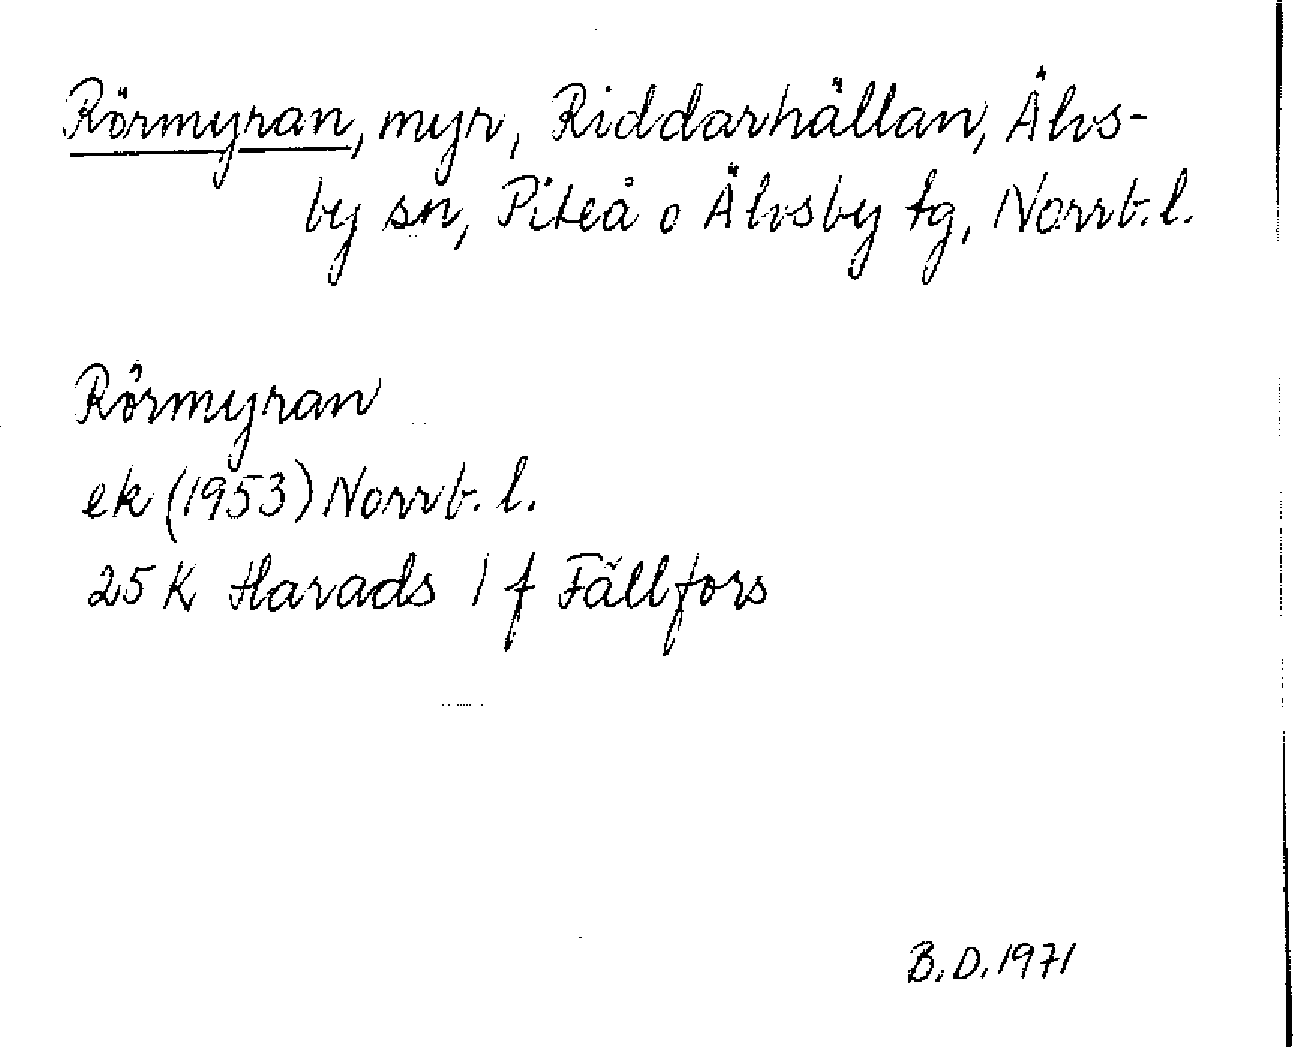 Rörmyran, myr, Riddarhällan, Älvs-
by sn, Piteå o Älvsby tg, Norrb. l.
Rörmyran
ek (1953) Norrb. l.
25 K Harads 1 f Fällfors
B.D. 1971